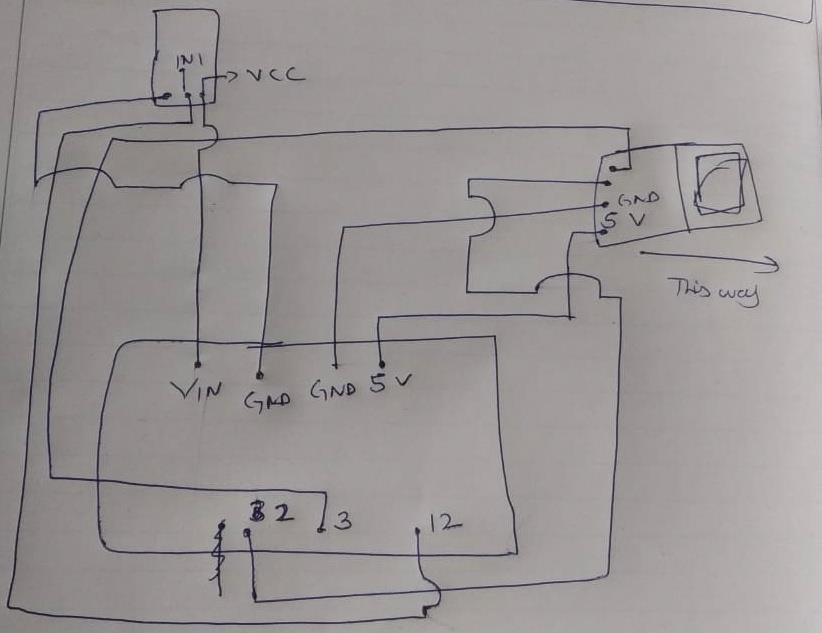 IN1
VCC
GND
5 V
This way
VIN
GND
GND
5 V
2
3
12